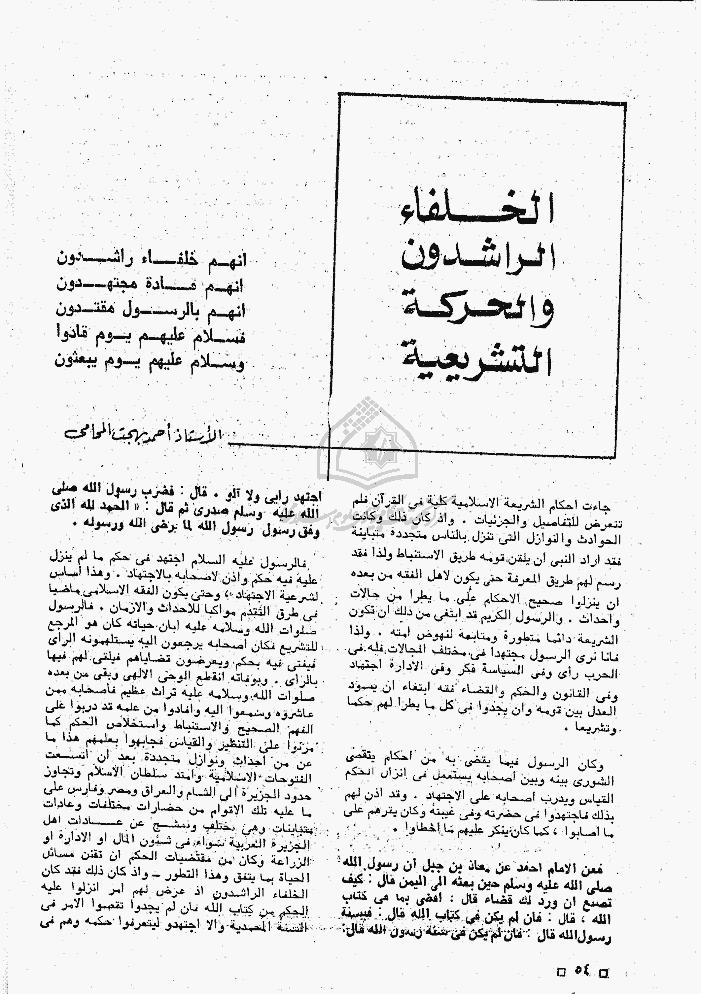 الخلفاء
الراشدون
والحركة
التشريعية
انهم خلفاء راشدون
انهم قادة مجتهدون
انهم بالرسول مقتدون
فسلام عليهم يوم قادوا
وسلام عليهم يوم يبعثون
الأستاذ أحمد بهجت المحامي
جاءت احكام الشريعة الاسلامية كلية فى القرآن فلم
تتعرض للتفاصيل والجزئيات . واذ كان ذلك وكانت
الحوادث والنوازل التى تنزل بالناس متجددة متباينة
فقد اراد النبى ان يلقن قومه طريق الاستنباط ولذا فقد
رسم لهم طريق المعرفة حتى يكون لاهل الفقه من بعده
ان ينزلوا صحيح الاحكام على ما يطرا من حالات
واحداث . والرسول الكريم قد ابتغى من ذلك ان تكون
الشريعة دائما متطورة ومتابعة لنهوض امته . ولذا
فانا نرى الرسول مجتهدا فى مختلف المجالات فله فى
الحرب رأى وفى السياسة فكر وفى الادارة اجتهاد
وفى القانون والحكم والقضاء فقه ابتغاء ان يسود
العدل بين قومه وان يجدوا فى كل ما يطرا لهم حكما
وتشريعا .
وكان الرسول فيما يقضى به من احكام يتقصى
الشورى بينه وبين اصحابه يستعمل فى انزال الحكم
القياس ويدرب أصحابه على الاجتهاد . وقد اذن لهم
بذلك فاجتهدوا فى حضرته وفى غيبته وكان يقرهم على
ما اصابوا ، كما كان ينكر عليهم ما أخطأوا .
فعن الامام احمد عن معاذ بن جبل أن رسول الله
صلى الله عليه وسلم حين بعثه الى اليمن قال : كيف
تصنع ان ورد لك قضاء قال : اقضى بما فى كتاب
الله ، قال : فان لم يكن فى كتاب الله قال : فبسنة
رسول الله قال : فان لم يكن فى سنة رسول الله قال :
اجتهد رأيى ولا آلو . قال : فضرب رسول الله صلى
الله عليه وسلم صدرى ثم قال : « الحمد لله الذى
وفق رسول رسول الله لما يرضى الله ورسوله .
فالرسول عليه السلام اجتهد فى حكم ما لم ينزل
عليه فيه حكم واذن لاصحابه بالاجتهاد . وهذا أساس
لشرعية الاجتهاد وحتى يكون الفقه الاسلامى ماضيا
فى طرق التقدم مواكبا للاحداث والازمان . فالرسول
صلوات الله وسلامه عليه إبان حياته كان هو المرجع
للتشريع فكان أصحابه يرجعون اليه يستلهمونه الرأى
فيفتى فيه بحكم ويعرضون قضاياهم فيلقى لهم فيها
بالرأى . وبوفاته انقطع الوحى الالهى وبقى من بعده
صلوات الله وسلامه عليه تراث عظيم فأصحابه ممن
عاشروه وسمعوا اليه وأفادوا من علمه قد دربوا على
الفهم الصحيح والاستنباط واستخلاص الحكم كما
مرنوا على التنظير والقياس فجابهوا بعلمهم هذا ما
عن من أحداث ونوازل متجددة بعد أن اتسعت
الفتوحات الاسلامية وامتد سلطان الاسلام وتجاوز
حدود الجزيرة الى الشام والعراق ومصر وفارس على
ما عليه تلك الاقوام من حضارات مختلفات وعادات
متباينات وهى تختلف وتنشج عن عادات اهل
الجزيرة العربية سواء فى شؤون المال او الادارة او
الزراعة وكان من مقتضيات الحكم ان تقنن مسائل
الحياة بما يتفق وهذا التطور ــ واذ كان ذلك فقد كان
الخلفاء الراشدون اذ عرض لهم امر انزلوا عليه
الحكم من كتاب الله فان لم يجدوا تقصوا الامر فى
السنة المحمدية والا اجتهدو ليتعرفوا حكمه وهم فى
٥٤